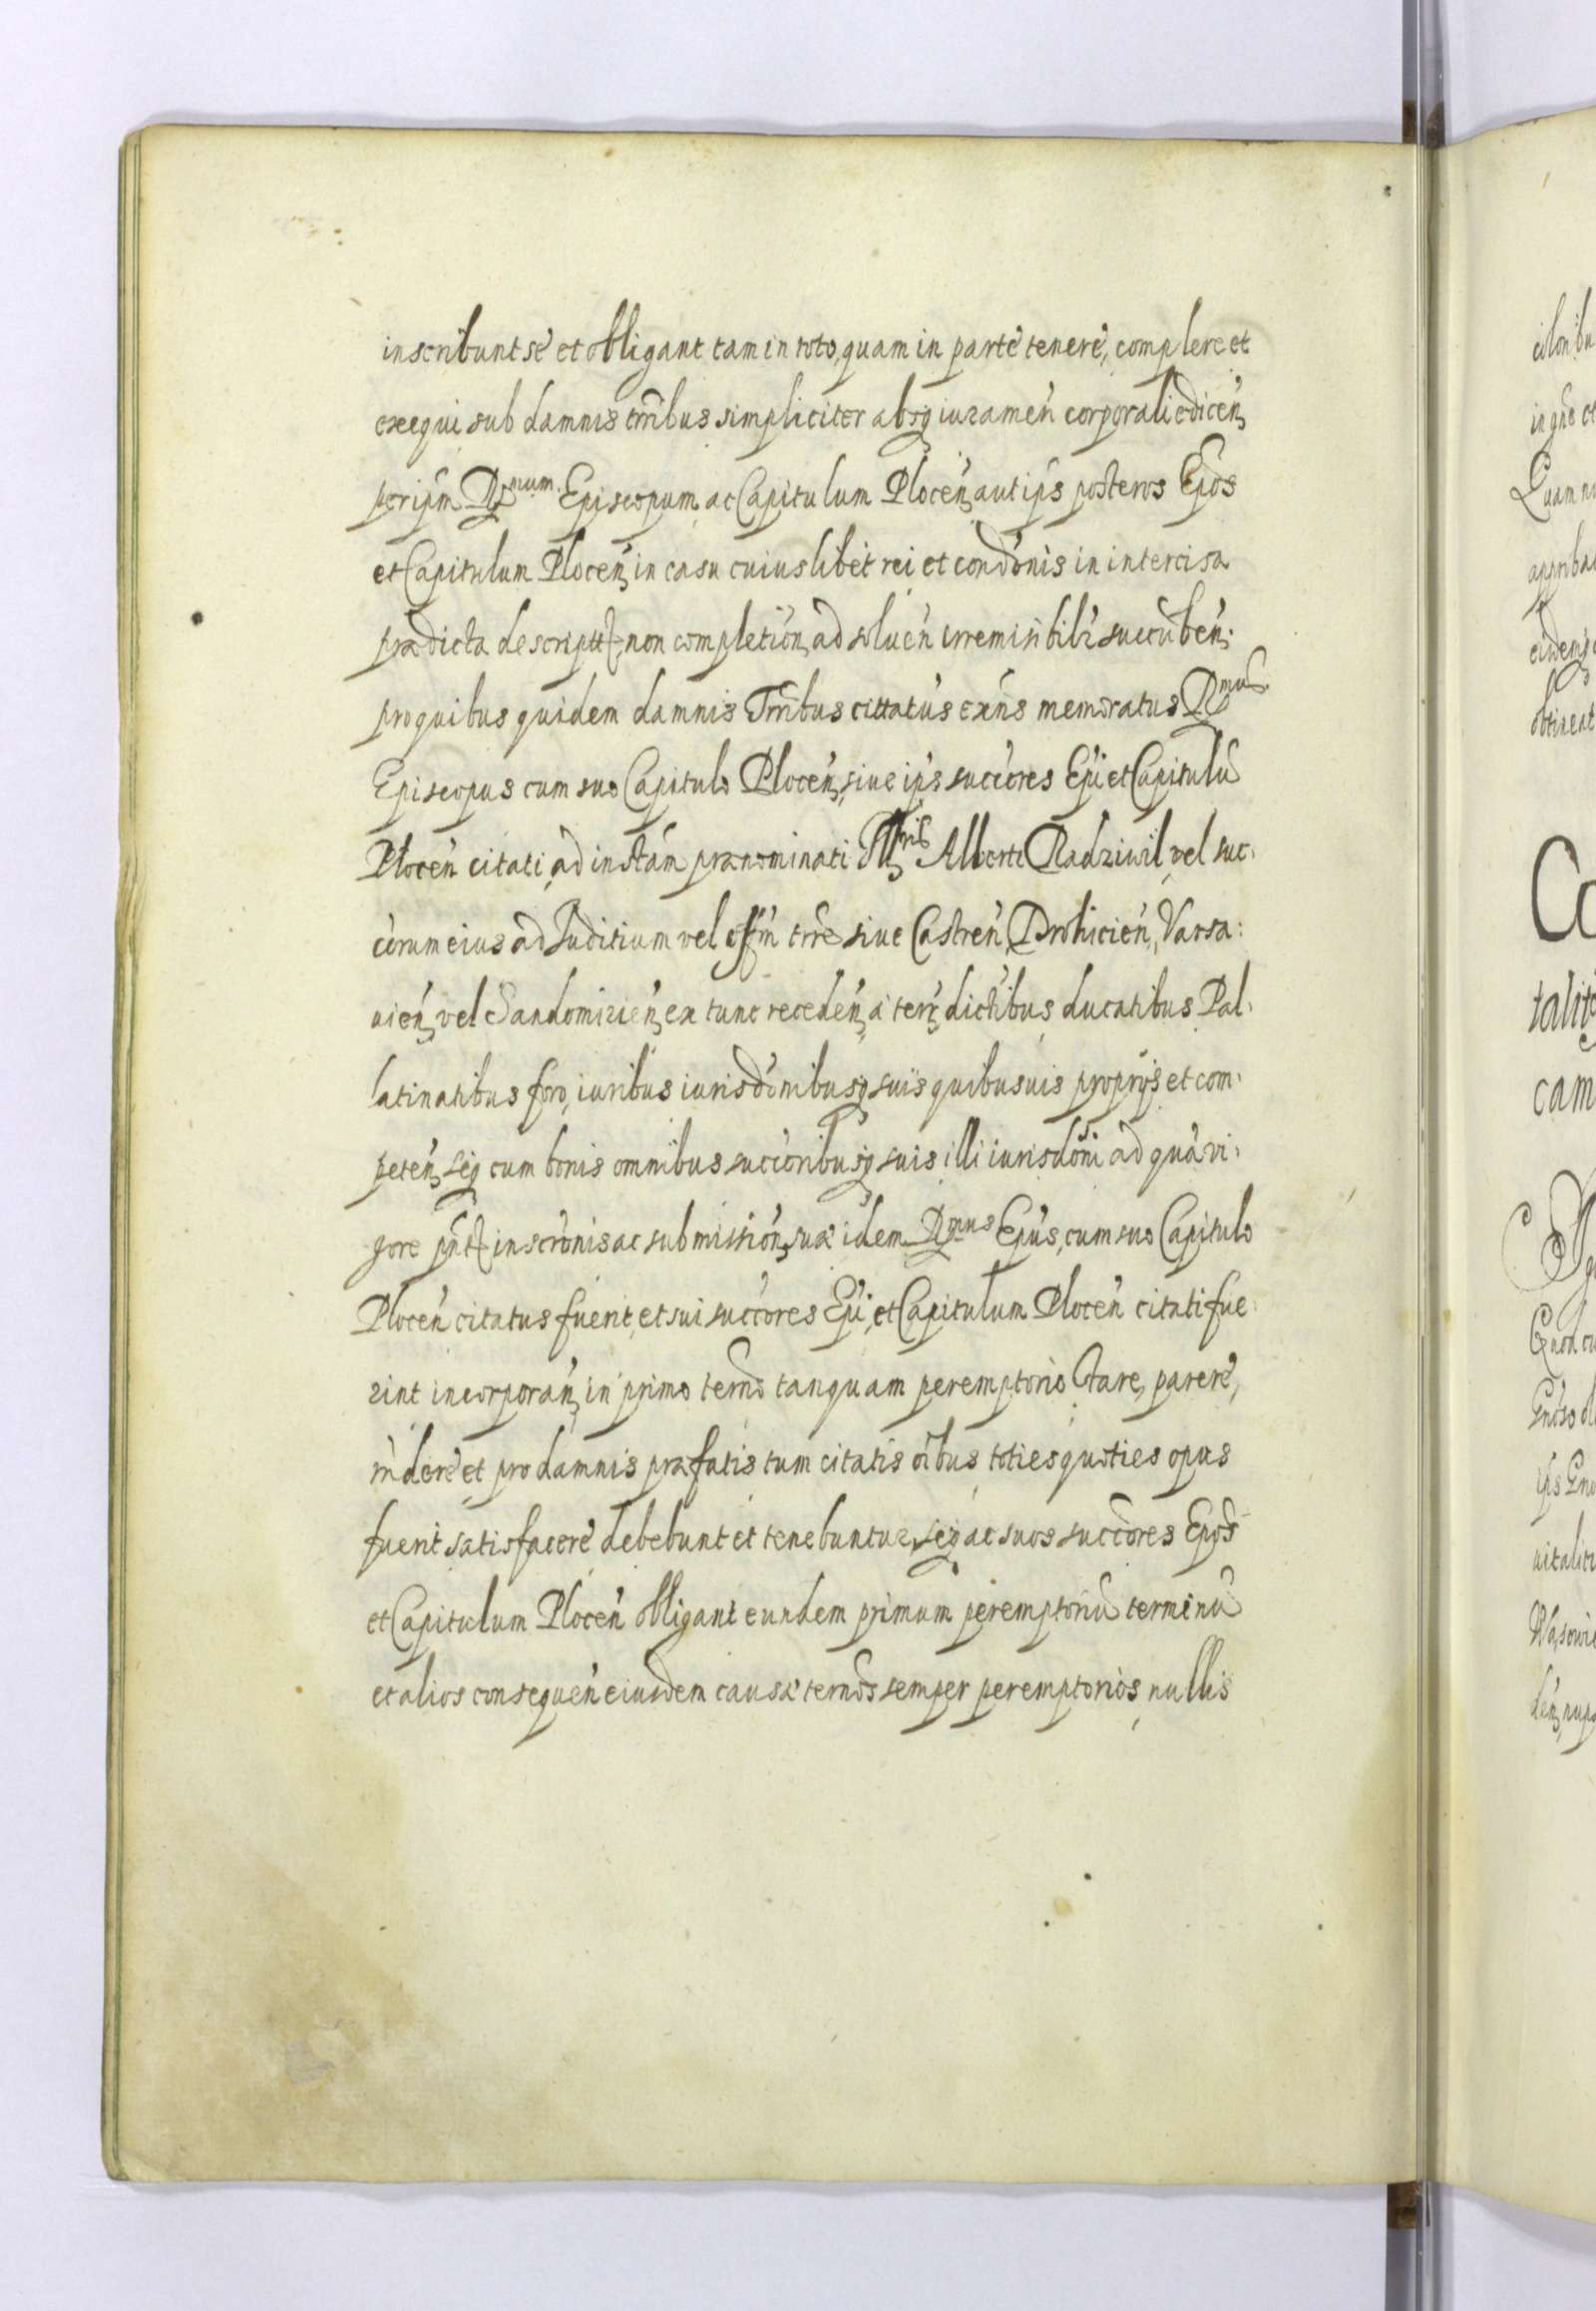 inscribunt se et obligant tam in toto, quam in parte tenere, complere et
exequi sub damnis trribus simpliciter absq iuramen corporali edicen
per ipm Rmum Episcopum ac Capitulum Plocen aut ips posteros Epos
et Capitulum Plocen in casu cuiuslibet rei et condonis in intercisa
prædicta descript non completion ad soluen irremisibilr succuben
pro quibus quidem damnis Trribus cittatus exns memoratus Rmus
Episcopus cum suo Capitulo Plocen, siue ips succores Epi et Capitulu
Plocen citati, ad instam prænominati Illris Alberti Radziwil, vel suc
corum eius ad Juditium vel offm trre siue Castren Drohicien, Varsa:
uien, vel Sandomirien ex tunc receden a terr dictibus ducatibus Pal
latinatibus foro, iuribus iurisdonibusq suis quibusuis proprijs et com
peten seq cum bonis omnibus succoribusq suis illi iurisdoni ad qua vi
gore pnt inscronis ac submission suæ idem Rmus Epus, cum suo Capitulo
Plocen citatus fuerit, et sui succores Epi, et Capitulum Plocen citati fue
rint incorporan in primo terno tanquam peremptorio stare, parere,
rndere et pro damnis præfatis tum citatis oibus toties quoties opus
fuerit satisfacere debebunt et tenebuntur, seq ac suos succores Epos
et Capitulum Plocen obligant eundem primum peremptoriu terminu
et alios consequen eiusdem causæ ternos semper peremptorios, nullis